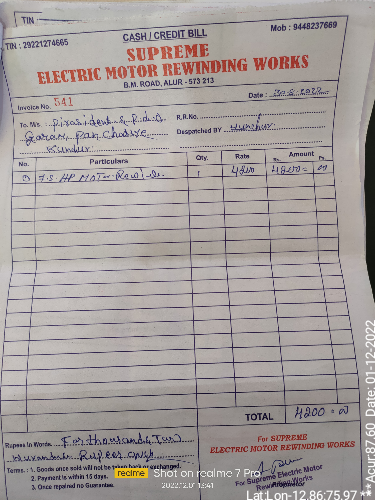 TIN
CASH / CREDIT BILL
TIN : 29221274665
Mob : 9448237669
SUPREME
ELECTRIC MOTOR REWINDING WORKS
B.M. ROAD, ALUR - 573 213
Invoice No. 541
Date : 30-5-2022
To. M/s
R.R.No.
Despatched BY
No. Particulars Qty. Rate Amount
Rs. Ps.
7.5 HP Motor 1 4200 4200 = 00
TOTAL 4200 = 00
Rupees in Words
Rupees only
For SUPREME
ELECTRIC MOTOR REWINDING WORKS
Terms : 1. Goods once sold will not be taken back or exchanged.
2. Payment is within 15 days.
3. Once repaired no Guarantee.
For Supreme Electric Motor
Rewinding Works
Proprietor
realme Shot on realme 7 Pro
2022.12.01 13:41
Lat:Lon-12.86:75.97 **
Acur:87.60 Date: 01-12-2022